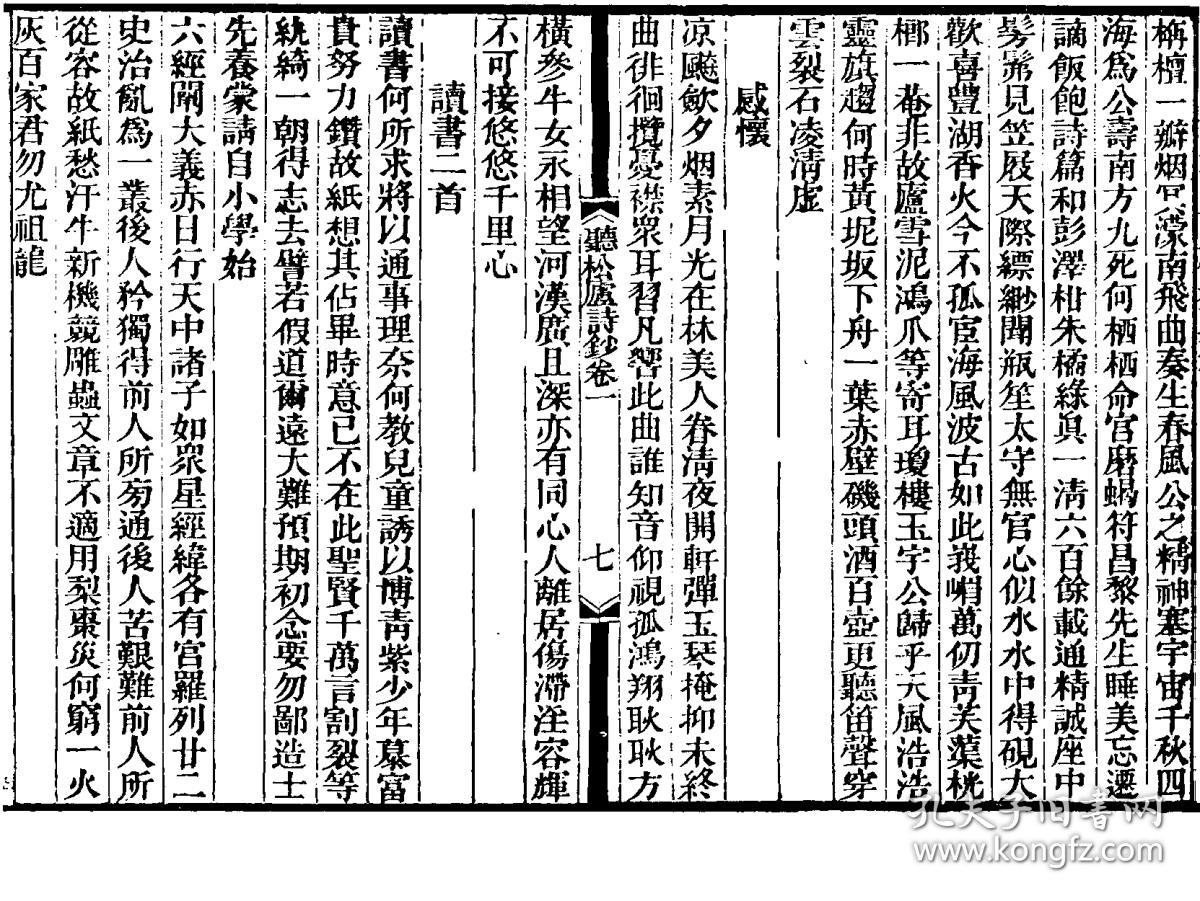 栴檀一瓣烟冥濛南飛曲奏生春風公之精神塞宇宙千秋四
海爲公壽南方九死何栖栖命宮磨蝎符昌黎先生睡美忘遷
謫飯飽詩篇和彭澤柑朱橘綠眞一清六百餘載通精誠座中
髣髴見笠屐天際縹緲聞瓶笙太守無官心似水水中得硯大
歡喜豐湖香火今不孤宦海風波古如此峩嵋萬仞靑芙蕖桄
榔一菴非故廬雪泥鴻爪等寄耳瓊樓玉宇公歸乎天風浩浩
靈旗趨何時黃坭坂下舟一葉赤壁磯頭酒百壺更聽笛聲穿
雲裂石凌淸虛
感懷
凉飈歛夕烟素月光在林美人眷淸夜開軒彈玉琴掩抑未終
曲徘徊攬憂襟衆耳習凡響此曲誰知音仰視孤鴻翔耿耿方
聽松廬詩鈔卷一
七
橫參牛女永相望河漢廣且深亦有同心人離居傷滯淫容輝
不可接悠悠千里心
讀書二首
讀書何所求將以通事理奈何教兒童誘以博靑紫少年慕富
貴努力鑽故紙想其佔畢時意已不在此聖賢千萬言割裂等
紈綺一朝得志去譬若假道爾遠大難預期初念要勿鄙造士
先養蒙請自小學始
六經闡大義赤日行天中諸子如眾星經緯各有宮羅列廿二
史治亂爲一叢後人矜獨得前人所旁通後人苦艱難前人所
從容故紙愁汗牛新機競雕蟲文章不適用梨棗災何窮一火
灰百家君勿尤祖龍
孔夫子旧书网
www.kongfz.com